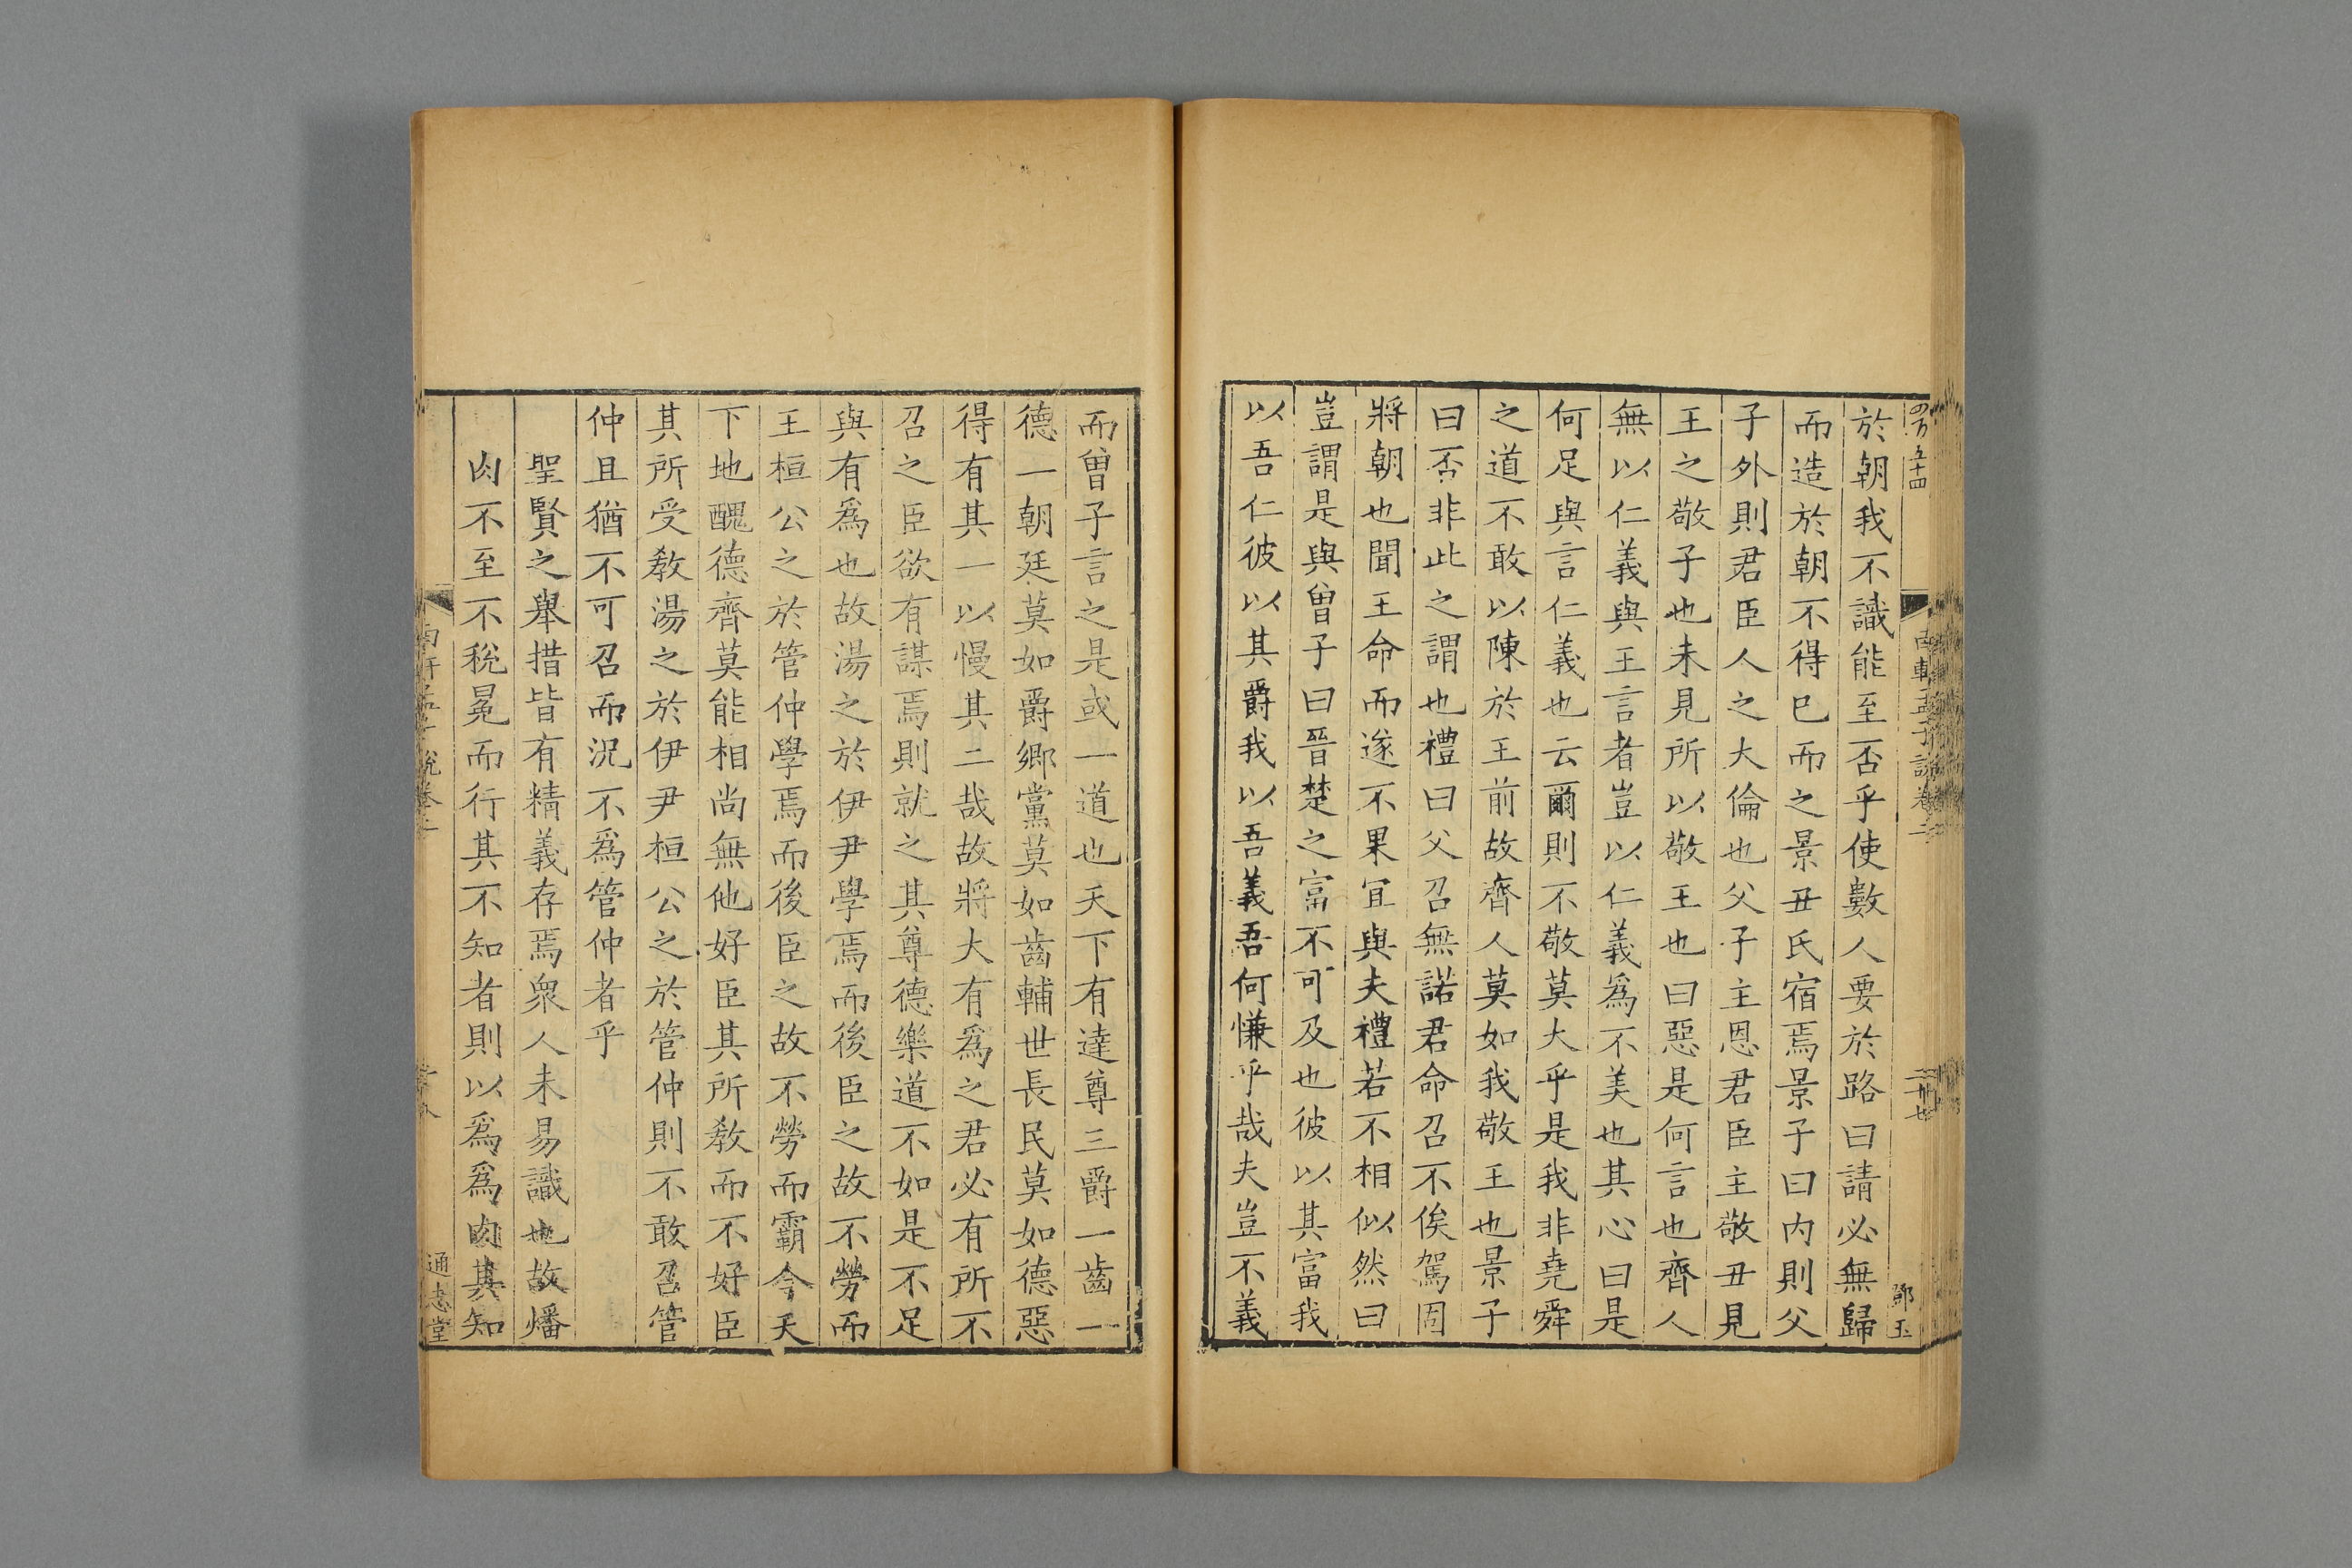 於朝我不識能至否乎使數人要於路曰請必無歸
而造於朝不得已而之景丑氏宿焉景子曰内則父
子外則君臣人之大倫也父子主恩君臣主敬丑見
王之敬子也未見所以敬王也曰惡是何言也齊人
無以仁義與王言者豈以仁義爲不美也其心曰是
何足與言仁義也云爾則不敬莫大乎是我非堯舜
之道不敢以陳於王前故齊人莫如我敬王也景子
曰否非此之謂也禮曰父召無諾君命召不俟駕固
將朝也聞王命而遂不果宜與夫禮若不相似然曰
豈謂是與曾子曰晉楚之富不可及也彼以其富我
以吾仁彼以其爵我以吾義吾何慊乎哉夫豈不義
而曾子言之是或一道也天下有達尊三爵一齒一
德一朝廷莫如爵鄉黨莫如齒輔世長民莫如德惡
得有其一以慢其二哉故將大有爲之君必有所不
召之臣欲有謀焉則就之其尊德樂道不如是不足
與有爲也故湯之於伊尹學焉而後臣之故不勞而
王桓公之於管仲學焉而後臣之故不勞而霸今天
下地醜德齊莫能相尚無他好臣其所教而不好臣
其所受教湯之於伊尹桓公之於管仲則不敢召管
仲且猶不可召而況不爲管仲者乎
聖賢之舉措皆有精義存焉衆人未易識也故燔
肉不至不稅冕而行其不知者則以爲爲肉其知
通志堂